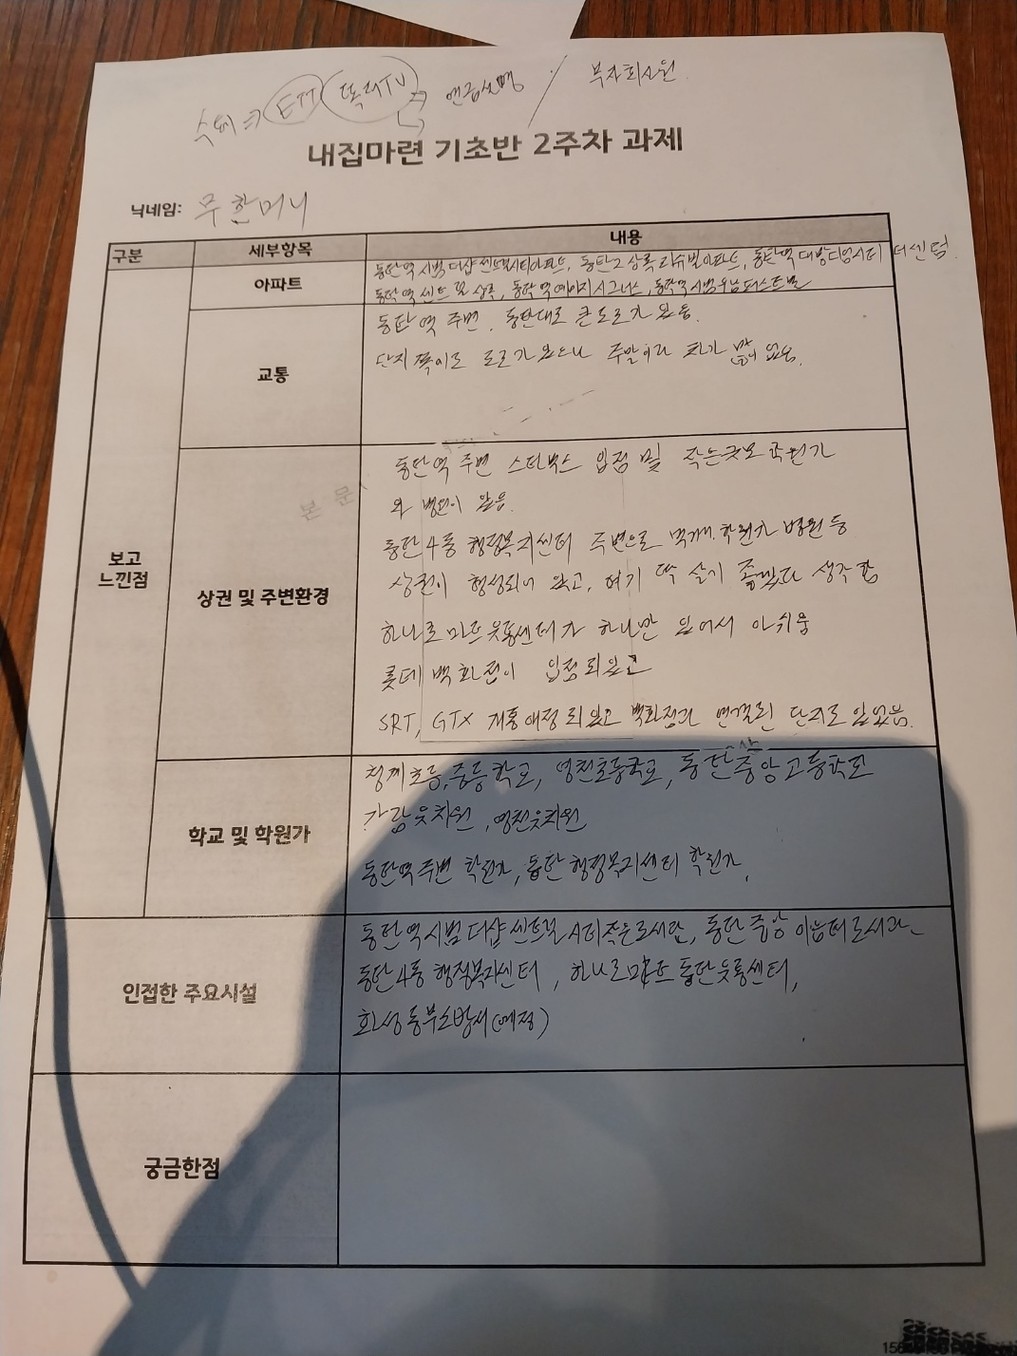 부자회사원
내집마련 기초반 2주차 과제
닉네임: 무한머니
구분 세부항목 내용
아파트 동탄역 시범 더샵 센트럴시티아파트, 동탄2 상록 리슈빌아파트, 동탄역 대방디엠시티 더센텀
동탄역 센트럴 상록, 동탄역 예미지시그너스, 동탄역 시범우남퍼스트빌
교통
동탄역 주변, 동탄대로 큰 도로가 있음.
단지쪽이도 도로가 있으나 주말이라 차가 많이 없음.
보고
느낀점
상권 및 주변환경
동탄역 주변 스타벅스 입점 및 작은규모 학원가
와 병원이 있음.
동탄4동 행정복지센터 주변으로 먹거리 학원가 병원 등
상권이 형성되어 있고, 여기 딱 살기 좋겠다 생각함
하나로마트 유통센터가 하나만 있어서 아쉬움
롯데백화점이 입점되있고
SRT, GTX 개통예정되있고 백화점과 연결된 단지로 있었음.
학교 및 학원가
청계초등,중등학교, 영천초등학교, 동탄중앙고등학교
가람유치원, 영천유치원
동탄역주변 학원가, 동탄행정복지센터 학원가,
인접한 주요시설
동탄역시범더샵센트럴시티작은도서관, 동탄중앙이음터도서관
동탄4동 행정복지센터, 하나로마트 동탄유통센터,
화성동부소방서(예정)
궁금한점